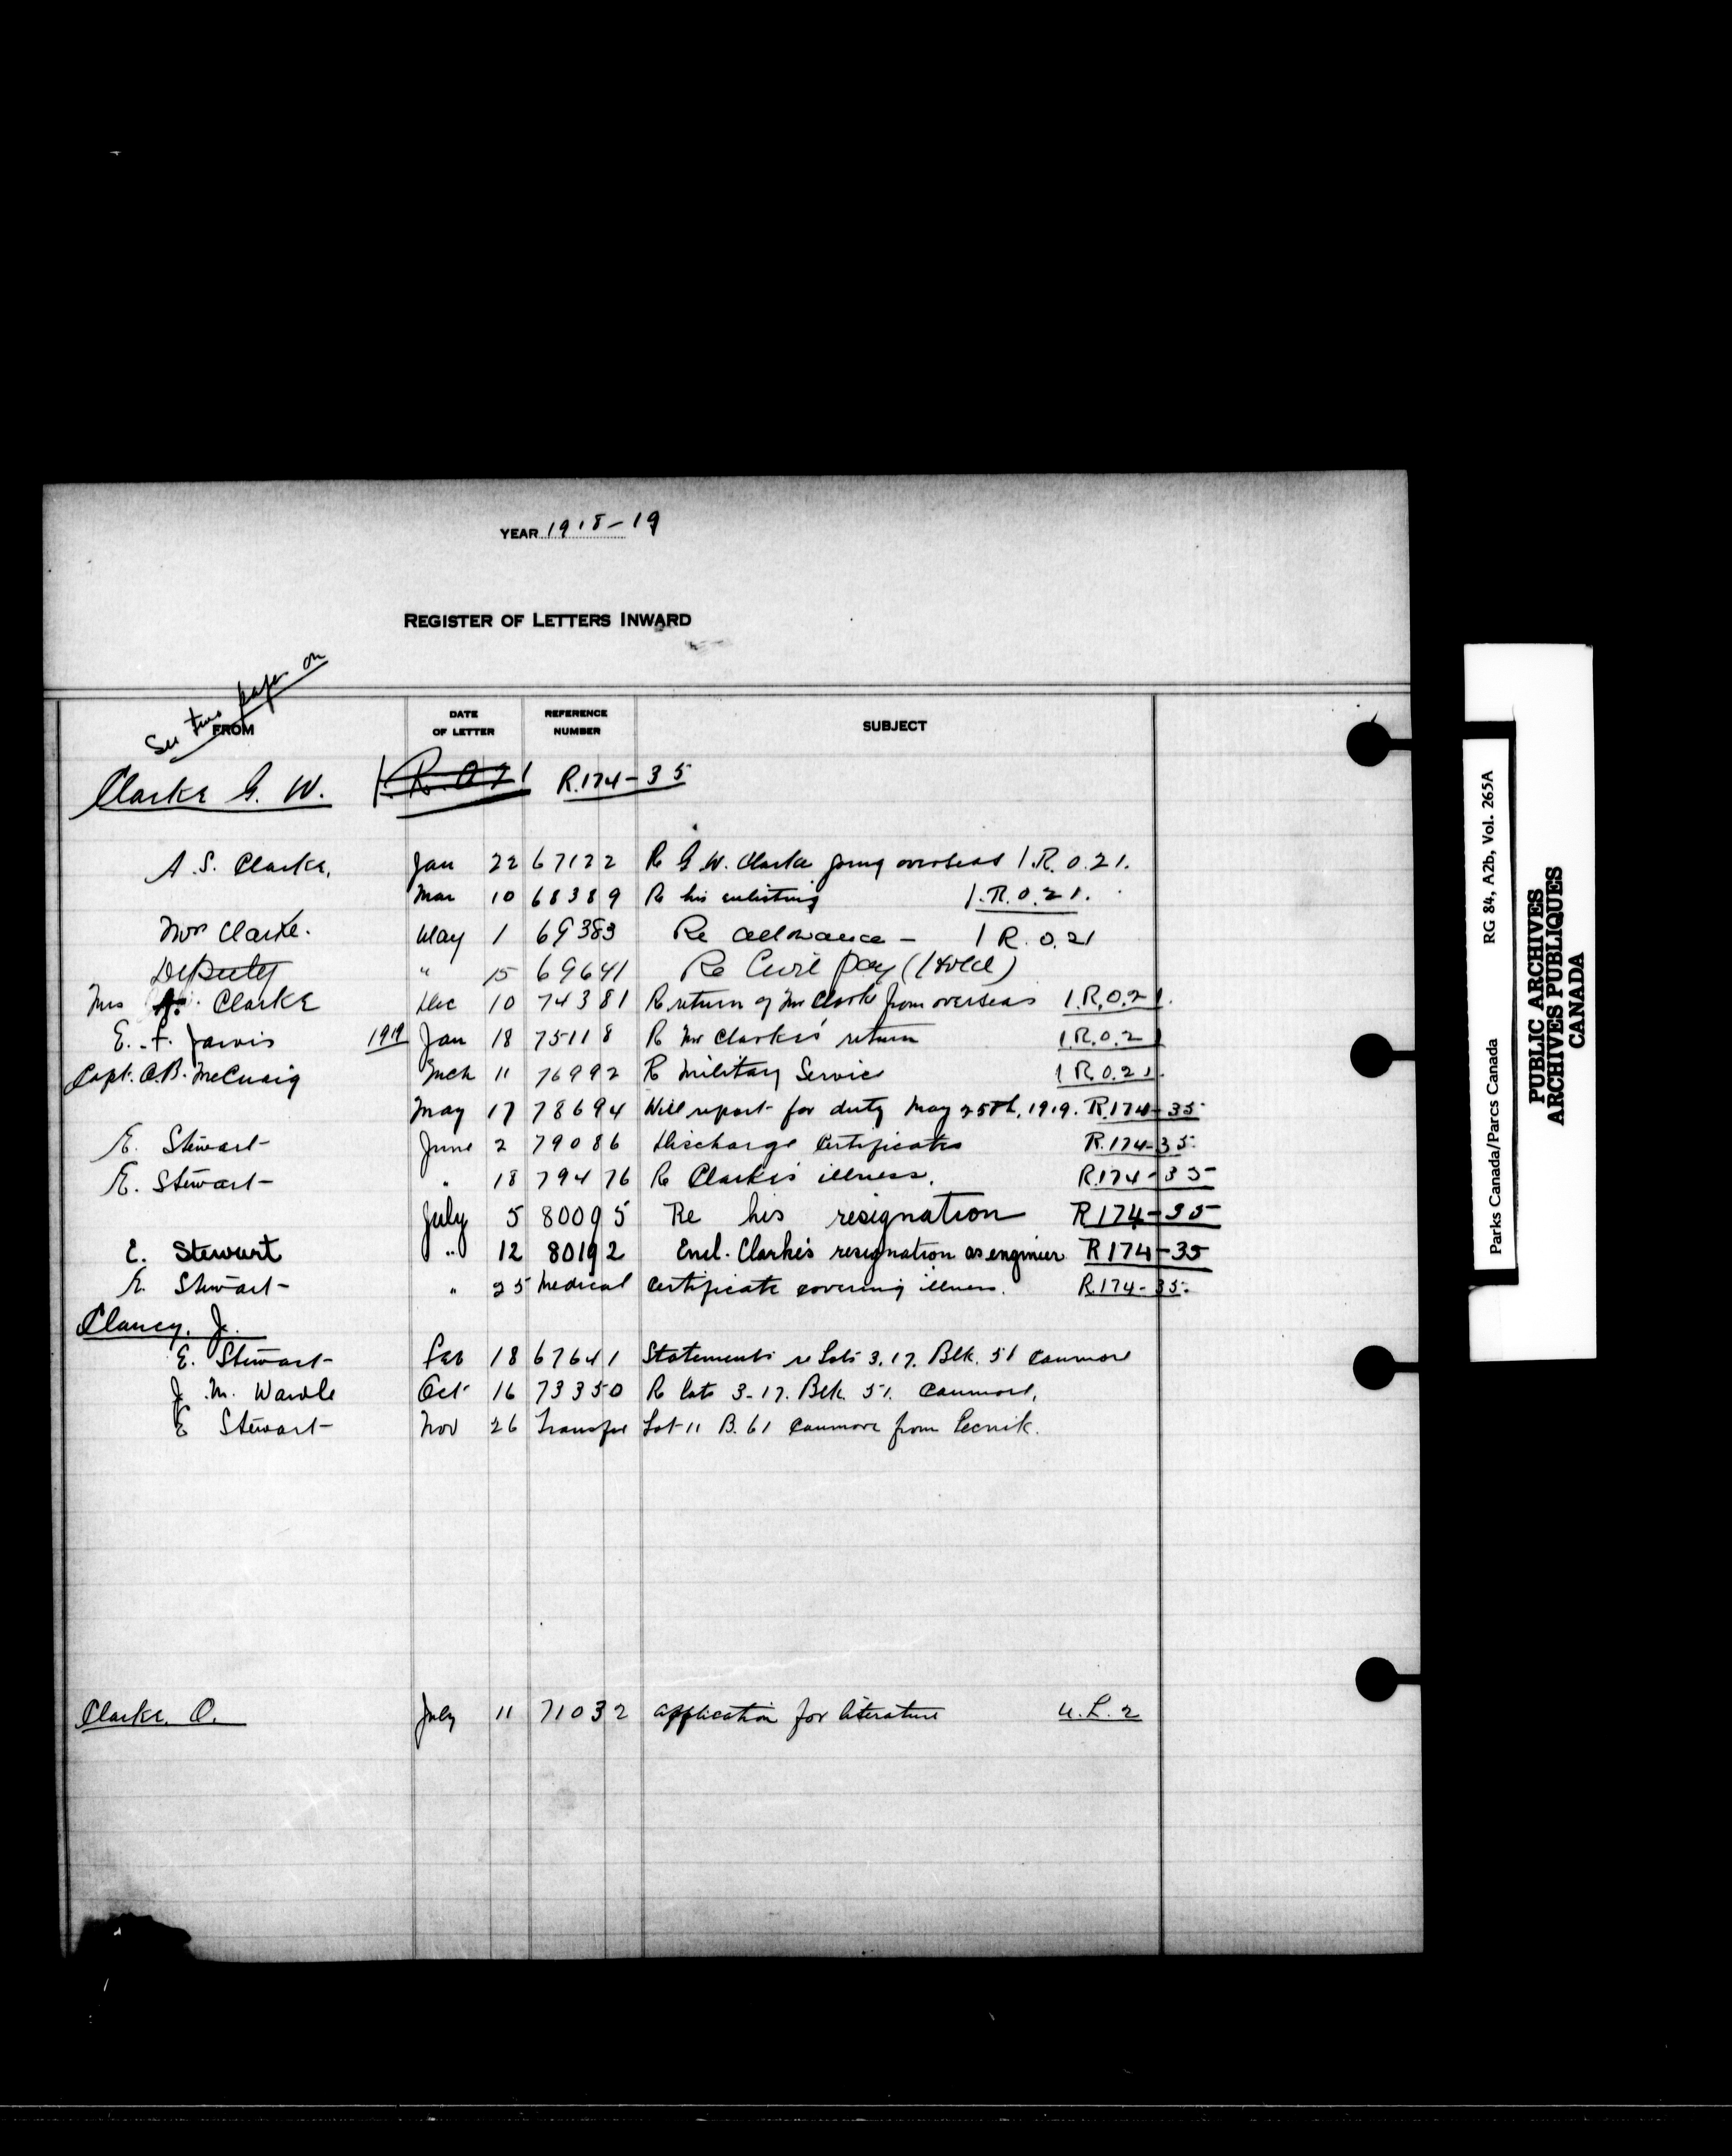 YEAR 1918-19
REGISTER OF LETTERS INWARD
See two pages on
FROM DATE OF LETTER REFERENCE NUMBER SUBJECT
Clarke G. W. 1.R.O21 R.174-35
A. S. Clarke, Jan 22 67122 Re G W. Clarke going overseas 1.R.O.21.
Mar 10 68389 Re his enlisting 1.R.O.21.
Mrs Clarke. May 1 69383 Re allowance - 1 R.O.21
Deputy " 15 69641 Re Civil pay (Hold)
Mrs A. Clarke Dec 10 74381 Re return of Mr Clarke from overseas 1.R.O.21.
E. F. Jarvis 1919 Jan 18 75118 Re Mr Clarke's return 1.R.O.21
Capt. C.B. McCuaig Mch 11 76992 Re Military Service 1 R.O.21.
May 17 78694 Will report for duty May 25th, 1919. R.174-35
E. Stewart June 2 79086 Discharge Certificates R.174-35
E. Stewart " 18 79476 Re Clarke's illness. R.174-35
July 5 80095 Re his resignation R174-35
E. Stewart " 12 80192 Encl. Clarke's resignation as engineer R174-35
E. Stewart " 25 Medical Certificate covering illness. R.174-35.
Clancy, J.
E. Stewart Feb 18 67641 Statements re Lots 3.17. Blk. 51 Canmore
J. M. Wardle Oct 16 73350 Re lots 3-17. Blk. 51. Canmore,
E Stewart Nov 26 Transfer Lot 11 B. 61 Canmore from
Clarke. O. July 11 71032 application for literature U.L.2
Parks Canada/Parcs Canada RG 84, A2b, Vol. 265A
PUBLIC ARCHIVES
ARCHIVES PUBLIQUES
CANADA